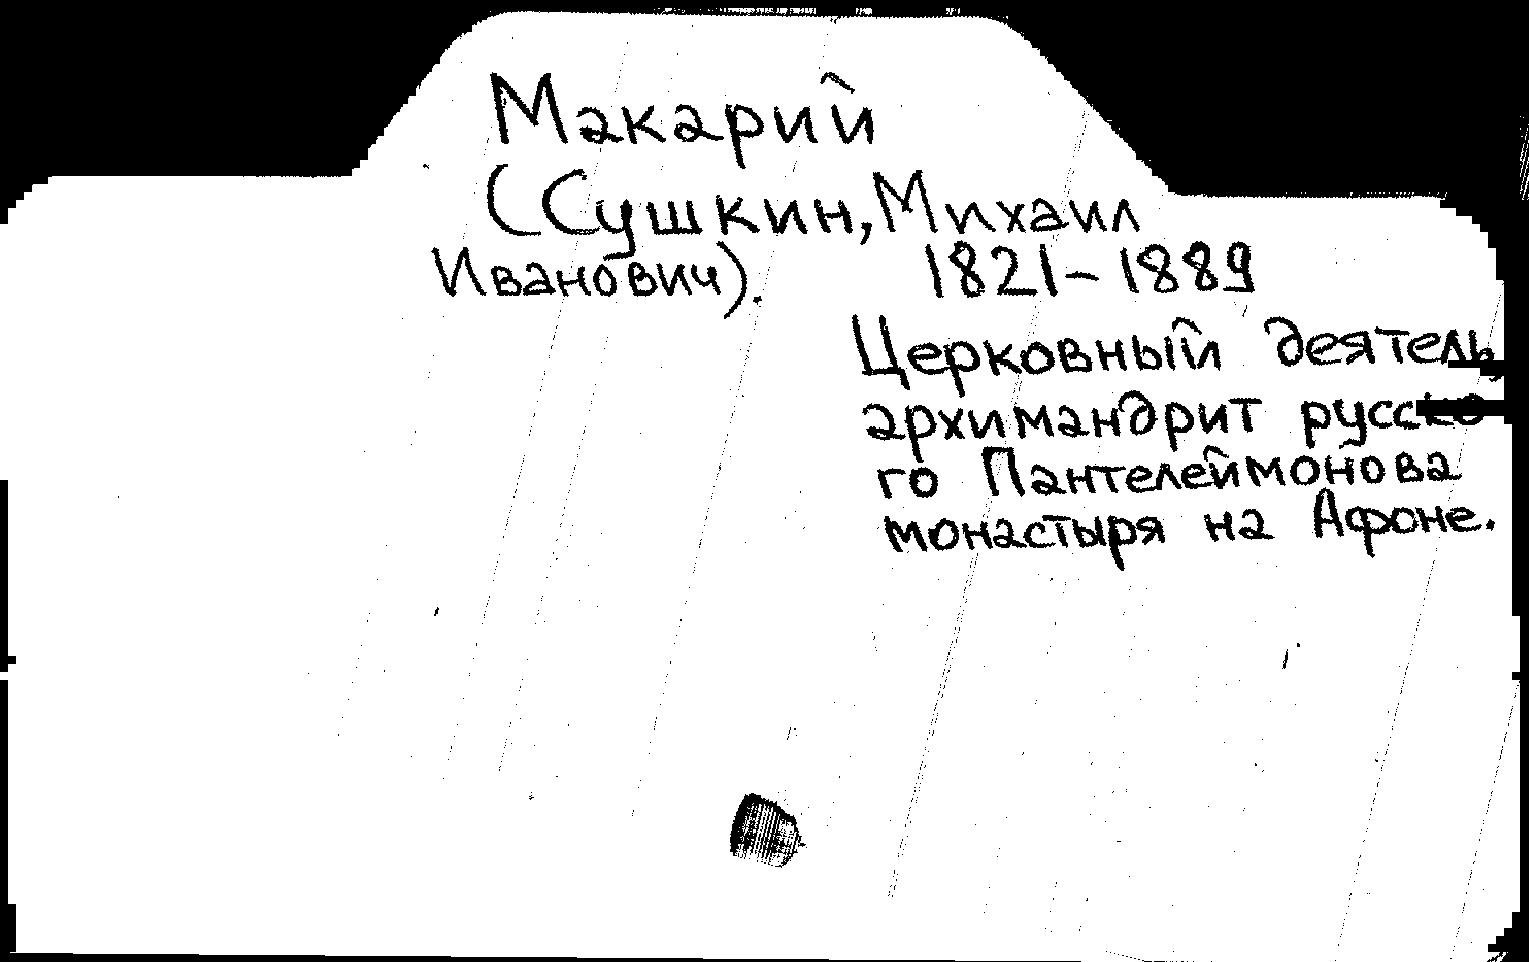 Макарий
(Сушкин, Михаил
Иванович). 1821-1889
Церковный деятель,
архимандрит русско
го Пантелеймонова
монастыря на Афоне.